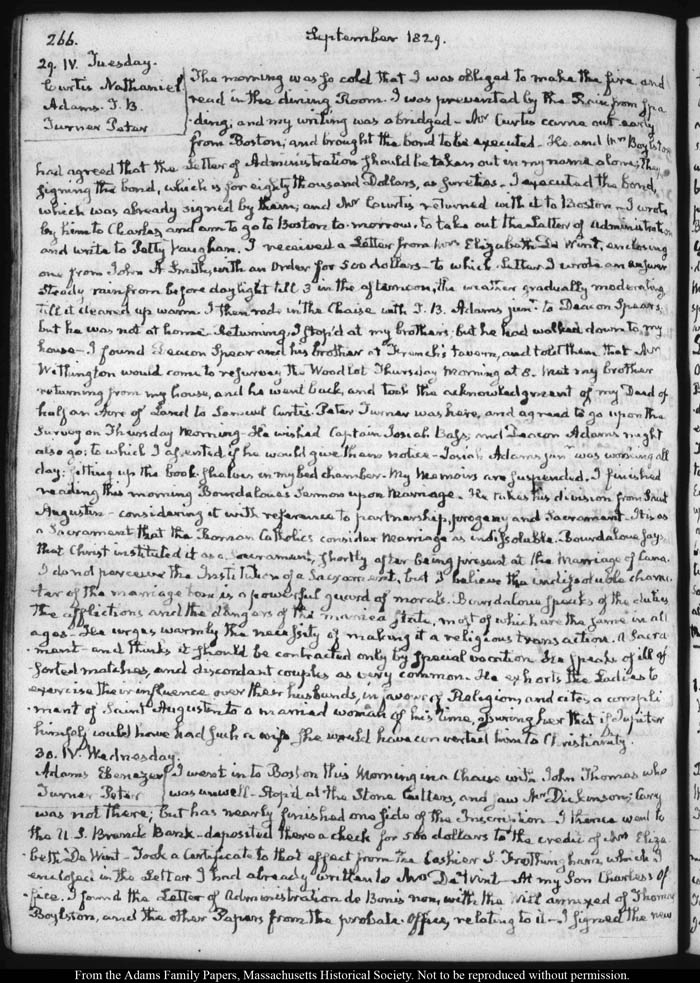 266.
September 1829.
29. IV. Tuesday.
Curtis Nathaniel
Adams. T. B.
Turner Peter
The morning was so cold that I was obliged to make the fire and
read in the dining Room. I was prevented by the Rain from spa-
-ding; and my writing was abridged - Mr Curtis came out early
from Boston, and brought the bond to be executed - He and Mr Boylston
had agreed that the Letter of Administration should be taken out in my name alone; they
signing the bond, which is for eighty thousand Dollars, as sureties. I executed the bond,
which was already signed by them; and Mr Curtis returned with it to Boston - I wrote
by him to Charles, and am to go to Boston to-morrow, to take out the Letter of Administration
and write to Petty Vaughan. I received a Letter from Mrs Elizabeth De Wint, enclosing
one from John A Smith, with an Order for 500 dollars - to which Letter I wrote an answer
Steady rain from before daylight till 3 in the afternoon, the weather gradually moderating
till it cleared up warm. I then rode in the Chaise with T. B. Adams junr. to Deacon Spears,
but he was not at home. Returning, I stop'd at my brothers; but he had walked down to my
house - I found Deacon Spear and his brother at French's tavern, and told them that Mr
Withington would come to resurvey the Wood Lot Thursday Morning at 8. Met my brother
returning from my house, and he went back, and took the acknowledgment of my Deed of
half an Acre of Land to Samuel Curtis. Peter Turner was here, and agreed to go upon the
Survey on Thursday Morning - He wished Captain Josiah Bass, and Deacon Adams might
also go; to which I assented if he would give them notice - Josiah Adams jun was working all
day: fitting up the book shelves in my bed chamber. My Memoirs are suspended. I finished
reading this morning Bourdaloue's Sermon upon Marriage. He takes his division from Saint
Augustin - considering it with reference to partnership, progeny and Sacrament. It is as
a Sacrament that the Roman Catholics consider Marriage as indissoluble. Bourdaloue says
that Christ instituted it as a Sacrament, shortly after being present at the Marriage of Cana.
I do not perceive the Institution of a Sacrament, but I believe the indissoluble charac-
ter of the marriage bond is a powerful guard of morals. Bourdaloue speaks of the duties
the afflictions and the dangers of the married state, most of which are the same in all
ages - He urges warmly the necessity of making it a religious transaction. A Sacra-
-ment - and thinks it should be contracted only by special vocation. He speaks of ill as-
sorted matches, and discordant couples as very common. He exhorts the Ladies to
exercise their influence over their husbands, in favour of Religion; and cites a compli-
-ment of Saint Augustin to a married woman of his time, assuring her that if Jupiter
himself, could have had such a wife she would have converted him to Christianity.
30. IV. Wednesday.
Adams Ebenezer
Turner Peter
I went in to Boston this Morning in a Chaise with John Thomas who
was unwell - Stop'd at the Stone Cutters, and saw Mr Dickinson; Cary
was not there; but has nearly finished one side of the Inscription - I thence went to
the U. S. Branch Bank - deposited there a check for 500 dollars to the credit of Mrs Eliza-
-beth De Wint - Took a Certificate to that effect from the Cashier S. Frothingham, which I
enclosed in the Letter I had already written to Mrs De Wint - At my Son Charles's Of-
-fice. I found the Letter of Administration de Bonis non, with the Will annexed of Thomas
Boylston, and the other Papers from the probate Office, relating to it - I signed the new
From the Adams Family Papers, Massachusetts Historical Society. Not to be reproduced without permission.